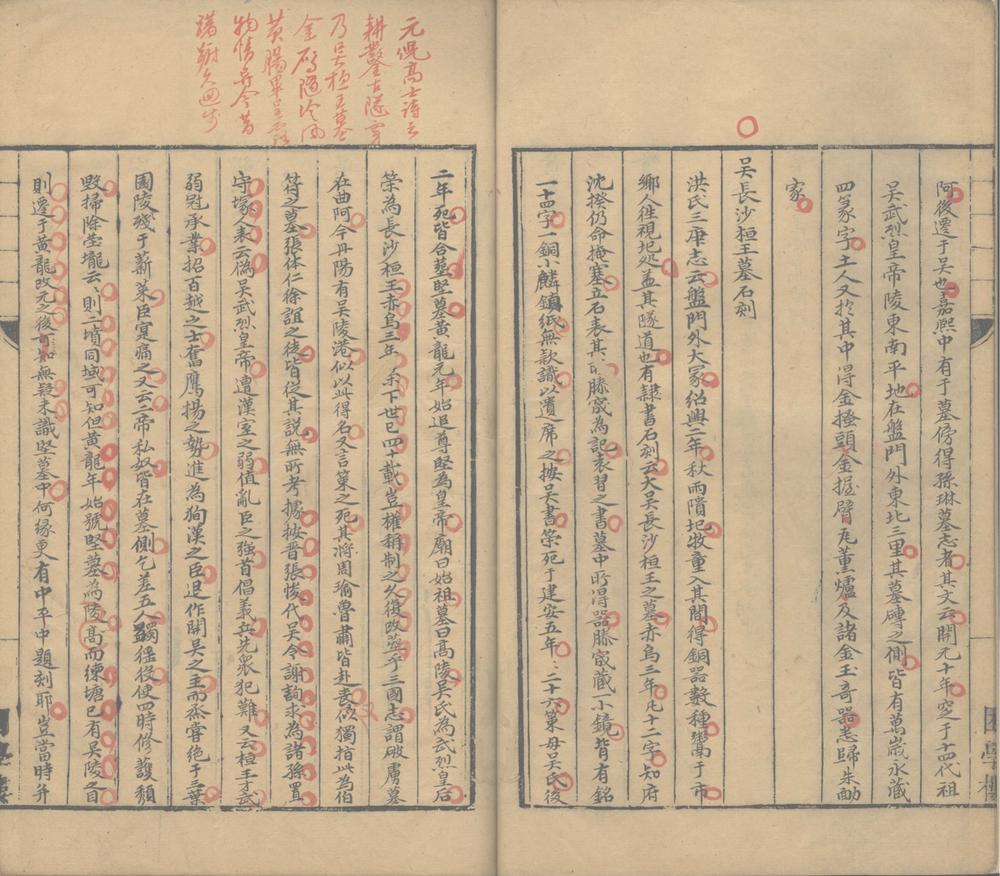 阿後遷于吳也嘉熙中有于墓傍得孫琳墓志者其文云開元十年窆于十四代祖
吳武烈皇帝陵東南平地在盤門外東北三里其墓磚之側皆有萬歲永藏
四篆字土人又於其中得金搔頭金握臂瓦薰爐及諸金玉奇器悉歸朱勔
家
吳長沙桓王墓石刻
洪氏三庚志云盤門外大冢紹興二年秋雨隤圮牧童入其間得銅器數種鬻于市
鄉人徃視圮処蓋其隧道也有隸書石刻云大吳長沙桓王之墓赤烏三年凡十二字知府
沈揆仍命掩塞立石表其二滕宬為記表習之書墓中所得器滕宬藏小鏡背有銘
一十四字一銅小麟鎮紙無款識以遺席之按吳書策死于建安五年二二十六策母吳氏後
二年死皆合葬堅墓黃龍元年始追尊堅為皇帝廟曰始祖墓曰高陵吳氏為武烈皇后
策為長沙桓王赤烏三年策下世已四十載豈權稱制之久復改葬乎三國志謂破虜墓
在曲阿今丹陽有吳陵港似以此得名又言策之死其將周瑜魯肅皆赴喪似獨指此為伯
符之墓張体仁徐誼之徒皆從其說無所考據按晋張悛代吳令謝詢求為諸孫置
守塚人表云偽吳武烈皇帝遭漢室之弱值亂臣之強首倡義兵先衆犯難又云桓王才武
弱冠承業招百越之士奮鷹揚之勢進為狥漢之臣退作開吳之主而烝嘗絕于三葉
園陵殘于薪菜臣寔痛之又云二帝私奴皆在墓側乞差五人蠲徭役使四時修護頹
毀掃除塋壠云二則二墳同域可知但黃龍年始號堅墓為陵高而練塘已有吳陵之目
則遷于黃龍改元之後可知無疑未識堅墓中何緣更有中平中題刻耶豈當時并
元倪高士詩云
耕鑿古隧穿
乃是桓王墓
金雁隨冷風
黃腸畢呈露
物情異今昔